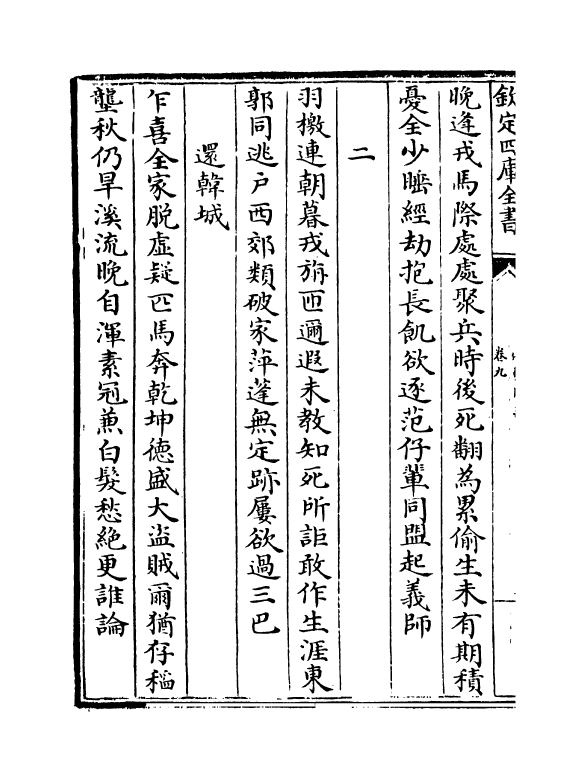 欽定四庫全書
卷九
晚逢戎馬際處處聚兵時後死翻為累偷生未有期積
憂全少睡經劫抱長飢欲逐范仔輩同盟起義師
二
羽檄連朝暮戎旃匝邇遐未教知死所詎敢作生涯東
郭同逃户西郊類破家萍蓬無定跡屢欲過三巴
還韓城
乍喜全家脱虚疑匹馬奔乾坤徳盛大盜賊爾猶存稻
壟秋仍旱溪流晚自渾素冠兼白髮愁絶更誰論